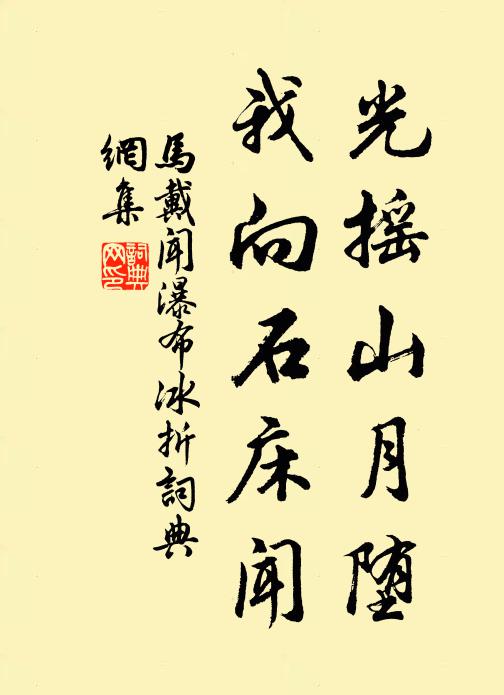 光摇山月堕
我向石床闻
馬戴聞瀑布冰折詞典
網集
詞典
网印